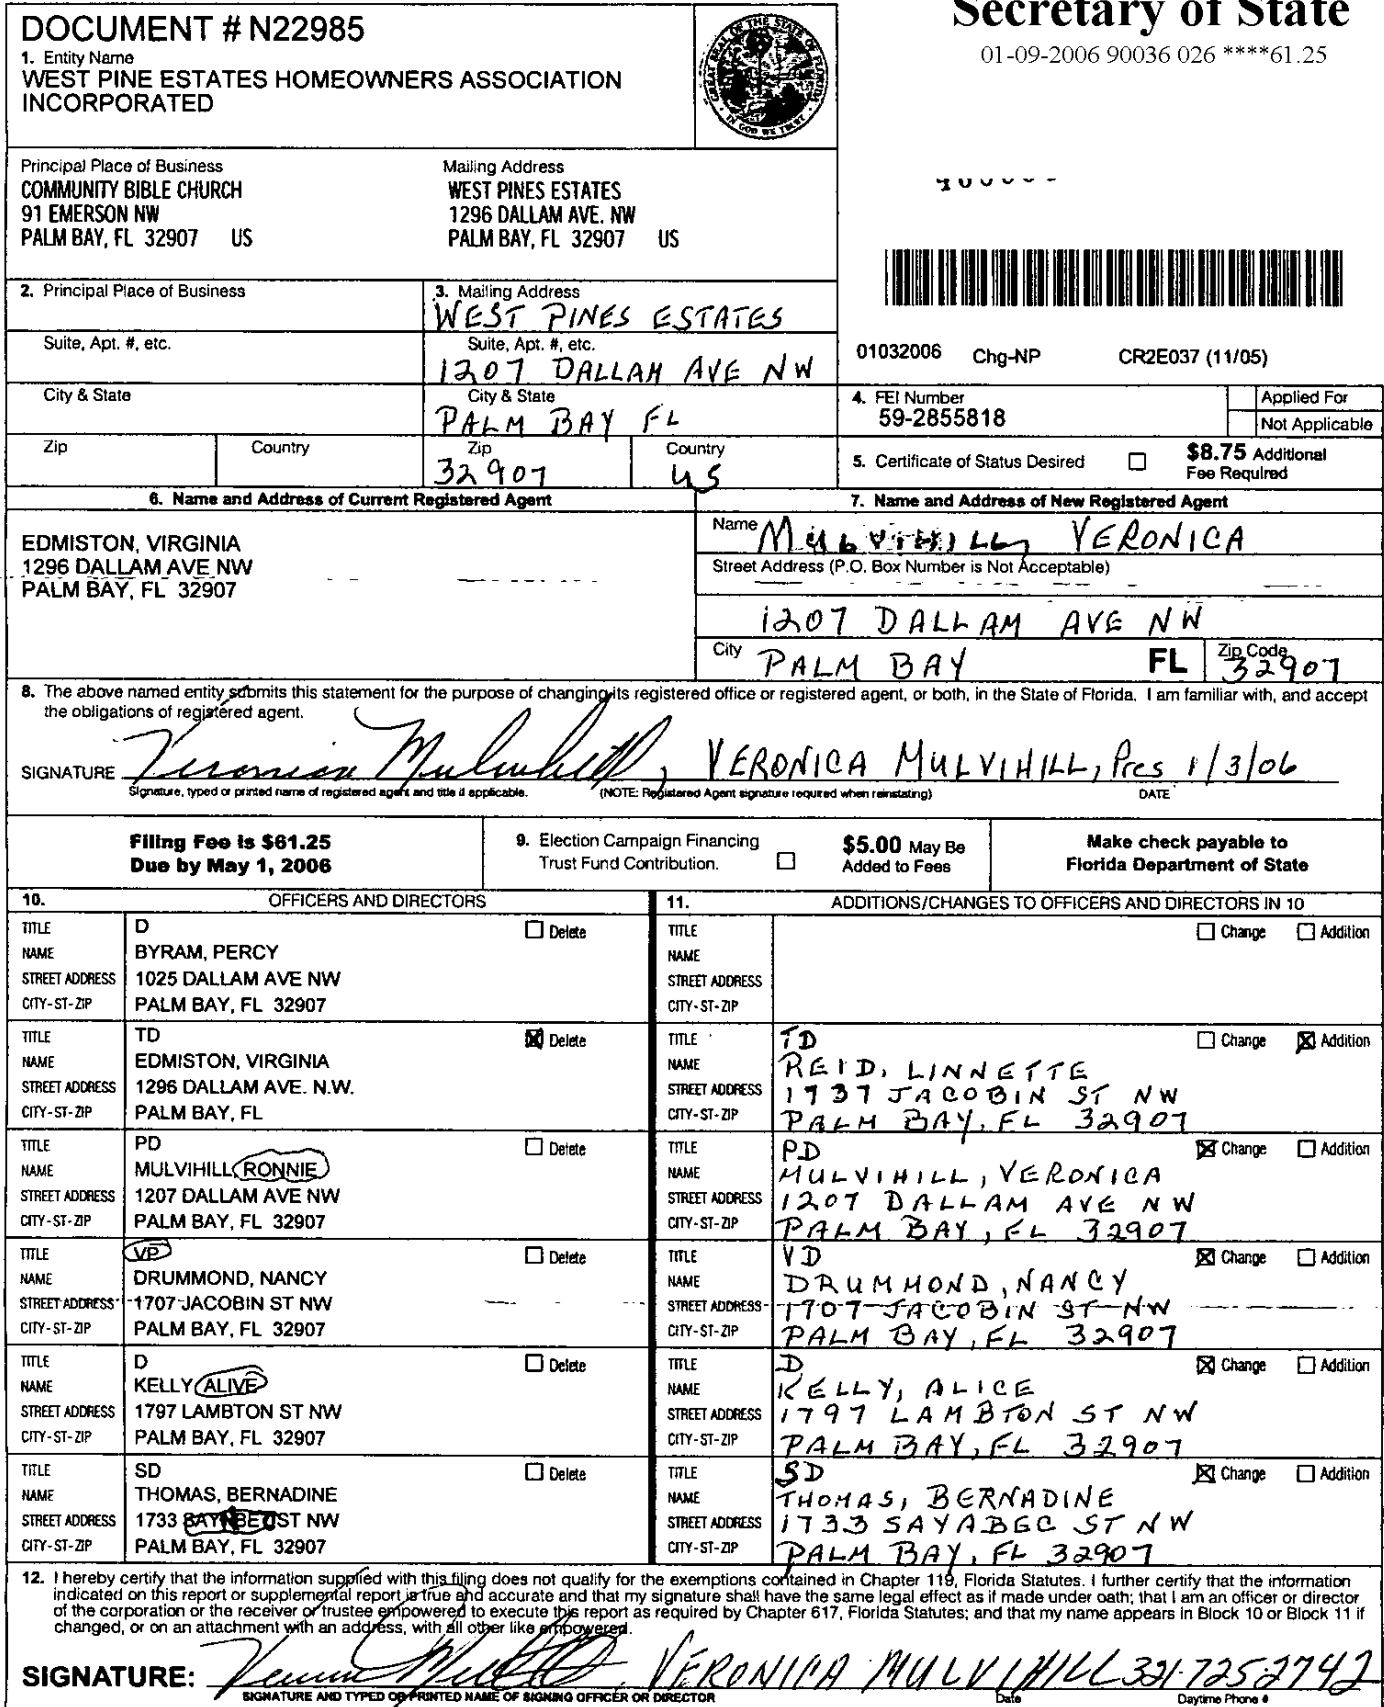 Secretary of State
01-09-2006 90036 026 ****61.25
DOCUMENT # N22985
1. Entity Name
WEST PINE ESTATES HOMEOWNERS ASSOCIATION
INCORPORATED
Principal Place of Business
COMMUNITY BIBLE CHURCH
91 EMERSON NW
PALM BAY, FL 32907 US
Mailing Address
WEST PINES ESTATES
1296 DALLAM AVE. NW
PALM BAY, FL 32907 US
2. Principal Place of Business
3. Mailing Address
WEST PINES ESTATES
Suite, Apt. #, etc.
Suite, Apt. #, etc.
1207 DALLAM AVE NW
City & State
City & State
PALM BAY FL
Zip
Country
Zip
32907
Country
US
01032006 Chg-NP CR2E037 (11/05)
4. FEI Number
59-2855818
Applied For
Not Applicable
5. Certificate of Status Desired
$8.75 Additional
Fee Required
6. Name and Address of Current Registered Agent
EDMISTON, VIRGINIA
1296 DALLAM AVE NW
PALM BAY, FL 32907
7. Name and Address of New Registered Agent
Name MULVIHILL, VERONICA
Street Address (P.O. Box Number is Not Acceptable)
1207 DALLAM AVE NW
City PALM BAY FL Zip Code 32907
8. The above named entity submits this statement for the purpose of changing its registered office or registered agent, or both, in the State of Florida. I am familiar with, and accept
the obligations of registered agent.
SIGNATURE Veronica Mulvihill, VERONICA MULVIHILL, Pres 1/3/06
Signature, typed or printed name of registered agent and title if applicable. (NOTE: Registered Agent signature required when reinstating) DATE
Filing Fee is $61.25
Due by May 1, 2006
9. Election Campaign Financing
Trust Fund Contribution.
$5.00 May Be
Added to Fees
Make check payable to
Florida Department of State
10. OFFICERS AND DIRECTORS
11. ADDITIONS/CHANGES TO OFFICERS AND DIRECTORS IN 10
TITLE D Delete
NAME BYRAM, PERCY
STREET ADDRESS 1025 DALLAM AVE NW
CITY-ST-ZIP PALM BAY, FL 32907
TITLE Change Addition
NAME
STREET ADDRESS
CITY-ST-ZIP
TITLE TD Delete
NAME EDMISTON, VIRGINIA
STREET ADDRESS 1296 DALLAM AVE. N.W.
CITY-ST-ZIP PALM BAY, FL
TITLE TD Change Addition
NAME REID, LINNETTE
STREET ADDRESS 1737 JACOBIN ST NW
CITY-ST-ZIP PALM BAY, FL 32907
TITLE PD Delete
NAME MULVIHILL RONNIE
STREET ADDRESS 1207 DALLAM AVE NW
CITY-ST-ZIP PALM BAY, FL 32907
TITLE PD Change Addition
NAME MULVIHILL, VERONICA
STREET ADDRESS 1207 DALLAM AVE NW
CITY-ST-ZIP PALM BAY, FL 32907
TITLE VP Delete
NAME DRUMMOND, NANCY
STREET ADDRESS 1707 JACOBIN ST NW
CITY-ST-ZIP PALM BAY, FL 32907
TITLE VD Change Addition
NAME DRUMMOND, NANCY
STREET ADDRESS 1707 JACOBIN ST NW
CITY-ST-ZIP PALM BAY, FL 32907
TITLE D Delete
NAME KELLY ALIVE
STREET ADDRESS 1797 LAMBTON ST NW
CITY-ST-ZIP PALM BAY, FL 32907
TITLE D Change Addition
NAME KELLY, ALICE
STREET ADDRESS 1797 LAMBTON ST NW
CITY-ST-ZIP PALM BAY, FL 32907
TITLE SD Delete
NAME THOMAS, BERNADINE
STREET ADDRESS 1733 ST NW
CITY-ST-ZIP PALM BAY, FL 32907
TITLE SD Change Addition
NAME THOMAS, BERNADINE
STREET ADDRESS 1733 SAYABEC ST NW
CITY-ST-ZIP PALM BAY, FL 32907
12. I hereby certify that the information supplied with this filing does not qualify for the exemptions contained in Chapter 119, Florida Statutes. I further certify that the information
indicated on this report or supplemental report is true and accurate and that my signature shall have the same legal effect as if made under oath; that I am an officer or director
of the corporation or the receiver or trustee empowered to execute this report as required by Chapter 617, Florida Statutes; and that my name appears in Block 10 or Block 11 if
changed, or on an attachment with an address, with all other like empowered.
SIGNATURE: Veronica Mulvihill, VERONICA MULVIHILL 321-725-2742
SIGNATURE AND TYPED OR PRINTED NAME OF SIGNING OFFICER OR DIRECTOR Date Daytime Phone #